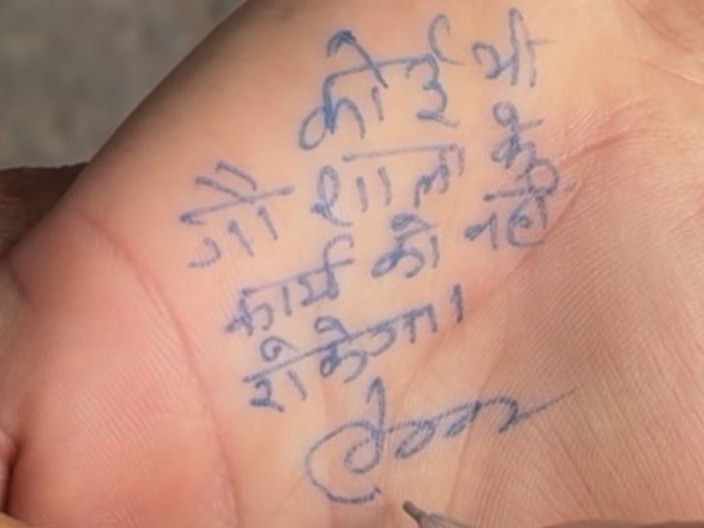 कोई भी
गौ शाला के
कार्य को नही
रोकेगा।